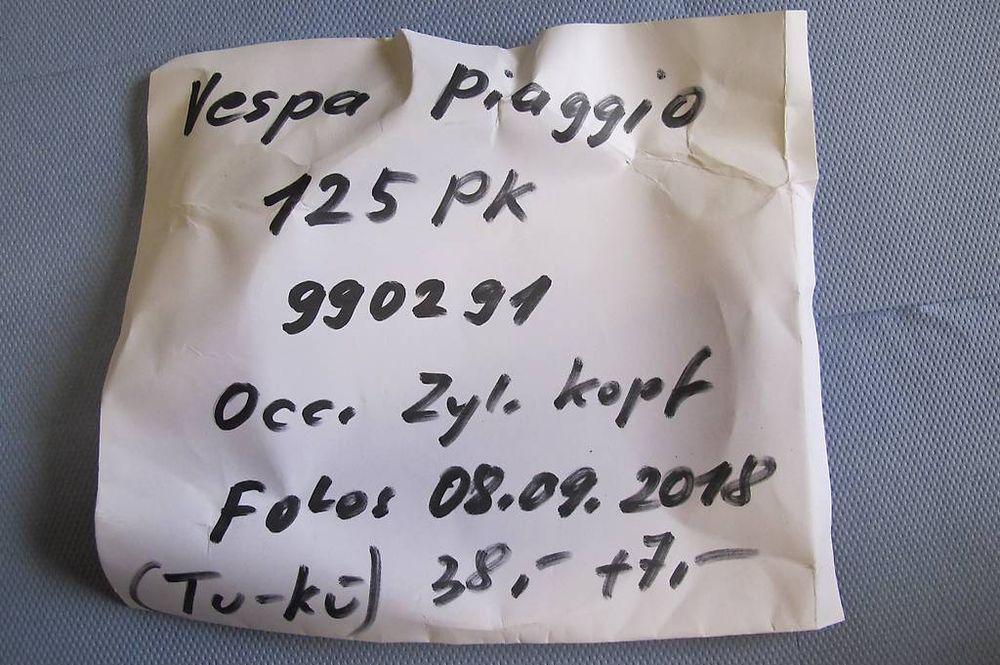 Vespa Piaggio
125 PK
990291
Occ. Zyl. kopf
Fotos 08.09.2018
(Tu-kü) 38,- +7,-